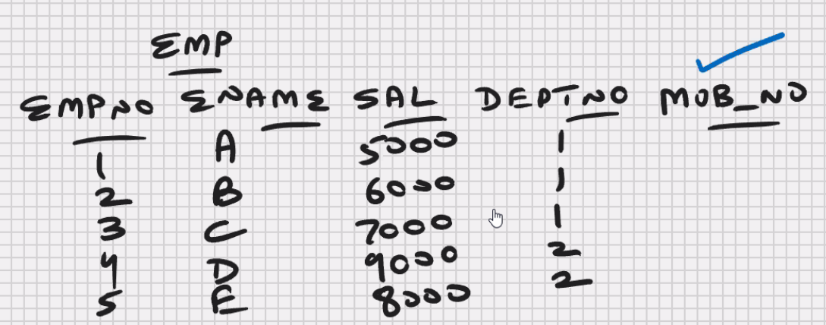 EMP
EMPNO ENAME SAL DEPTNO MOB_NO
1 A 5000 1
2 B 6000 1
3 C 7000 1
4 D 9000 2
5 E 8000 2